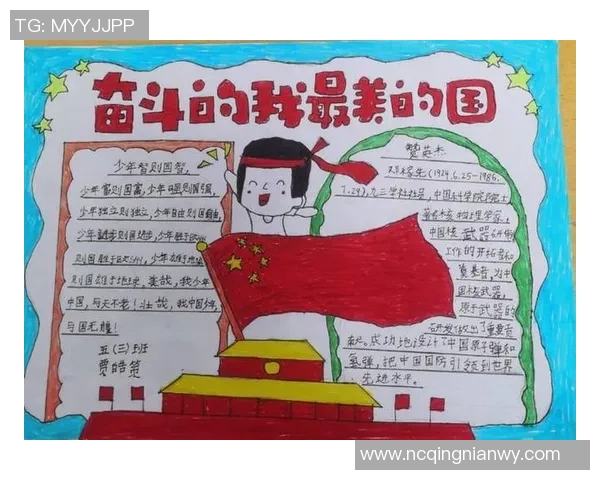 TG: MYYJJPP
奋斗的我最美的国
少年智则国智,
少年富则国富,少年强则国强,
少年独立则国独立,少年自由则国自由,
少年进步则国进步,少年胜于欧洲
则国胜于欧洲,少年雄于地球
则国雄于地球,美哉,我少年
中国,与天不老!壮哉,我中国少年,
与国无疆!
五(三)班
贾皓
赞英杰
邓稼先(1924.6.25-1986.
7.29),九三学社社员,中国科学院院士
著名核物理学家,
中国核武器研制
工作的开拓者和
奠基者,为中
国核武器,
原子武器的
研发做出了重要贡
献。成功地设计了中国原子弹和
氢弹,把中国国防引领到世界
先进水平。
www.ncqingnianwy.com